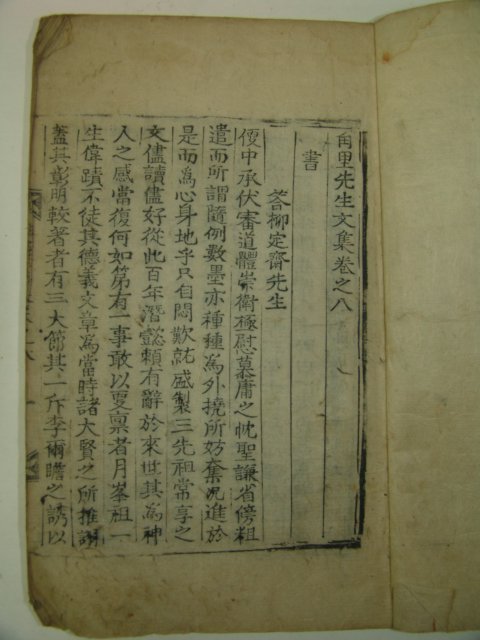 甪里先生文集卷之八
書
答柳定齋先生
便中承伏審道體崇衛極慰慕庸之忱聖謙省傍粗
遣而所謂隨例數墨亦種種為外撓所妨奪况進於
是而為心身地乎只自悶歎玆盛製三先祖常享之
文儘讀儘好從此百年潛懿賴有辭於來世其為神
人之感當復何如第有一事敢以更稟者月峯祖一
生偉蹟不徒其德義文章為當時諸大賢之所推謝
蓋其彰明較著者有三大節其一斥李爾瞻之誘以